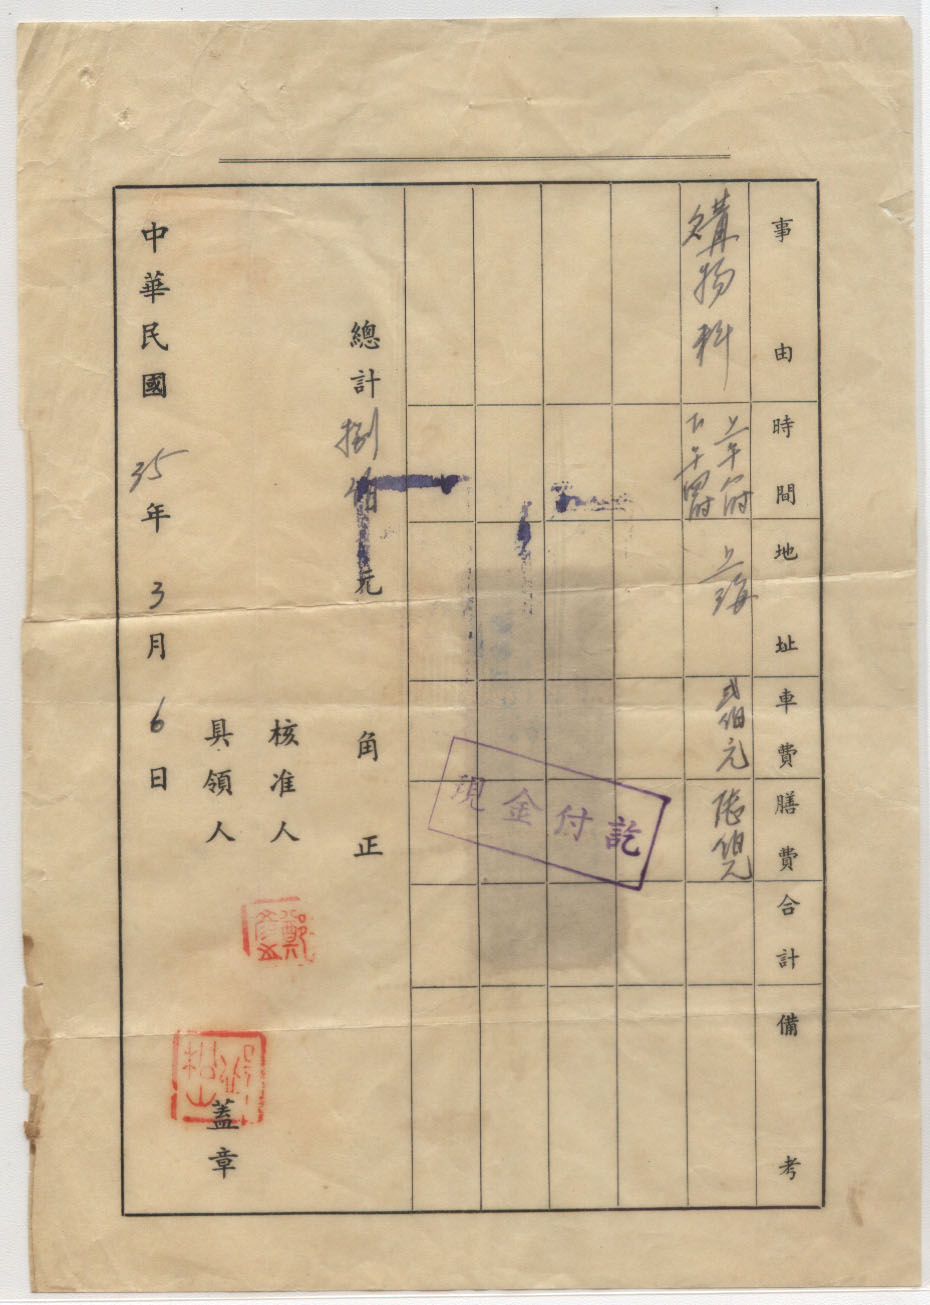 事由 時間 地址 車費 膳費 合計 備考
購物料 上午 時 下午四時 上海 弍佰元 陸佰元
總計捌佰元 角正
核准人
具領人 蓋章
中華民國35年3月6日
現金付訖
鄭